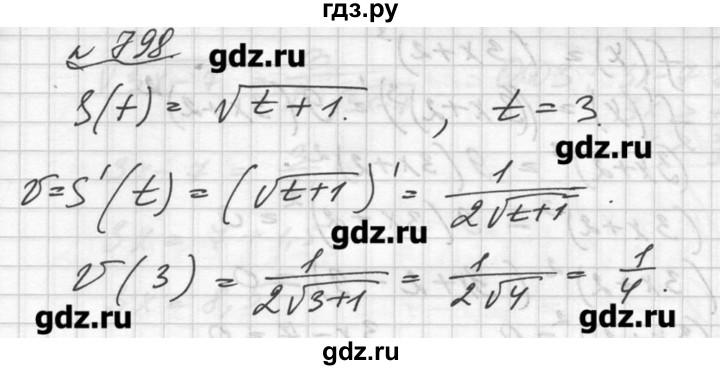 гдз.ру
№ 798 gdz.ru
S(t) = √(t+1). , t = 3.
gdz.ru
v = S'(t) = (√(t+1))' = 1/(2√(t+1)).
gdz.ru
v(3) = 1/(2√(3+1)) = 1/(2√4) = 1/4.
gdz.ru gdz.ru
gdz.ru